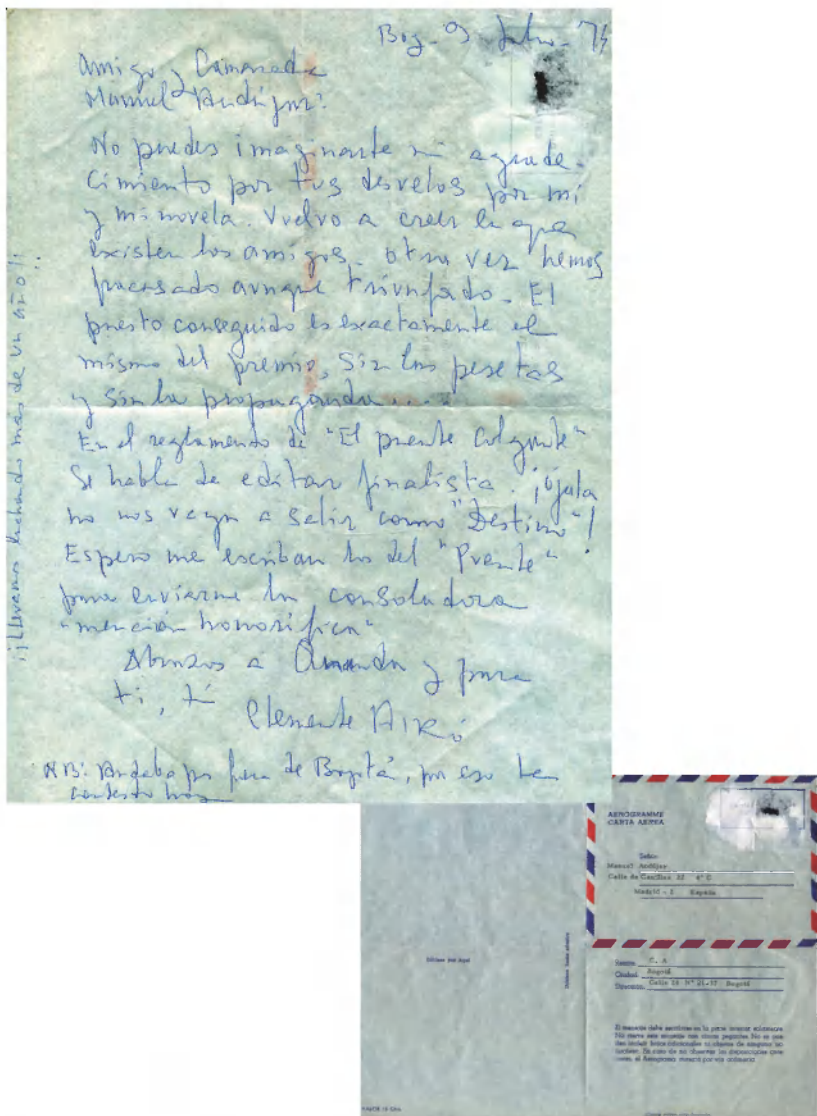 Bog - 9 Julio - 74
Amigo y Camarada
Manuel Andújar:
No puedes imaginarte mi agrade-
cimiento por tus desvelos por mi
y mi novela. Vuelvo a creer en que
existen los amigos. Otra vez hemos
fracasado aunque triunfado. El
puesto conseguido es exactamente el
mismo del premio, sin las pesetas
y sin la propaganda....
En el reglamento de "El puente colgante"
se habla de editar finalista. ¡Ojala
no nos vaya a salir como "Destino"!
Espero me escriban los del "Puente"
para enviarme la consoladora
"mención honorífica"
Abrazos a Ananda y para
ti, tú
Clemente AIRÓ
NB: Andaba por fuera de Bogotá, por eso te
contesto hoy
¡¡Llevamos luchando más de un año!!
AEROGRAMME
CARTA AEREA
Señor
Manuel Andújar
Calle de Castillo 32 4° C
Madrid - 5 España
C. A
Ciudad Bogotá
Dirección Calle N° Bogotá